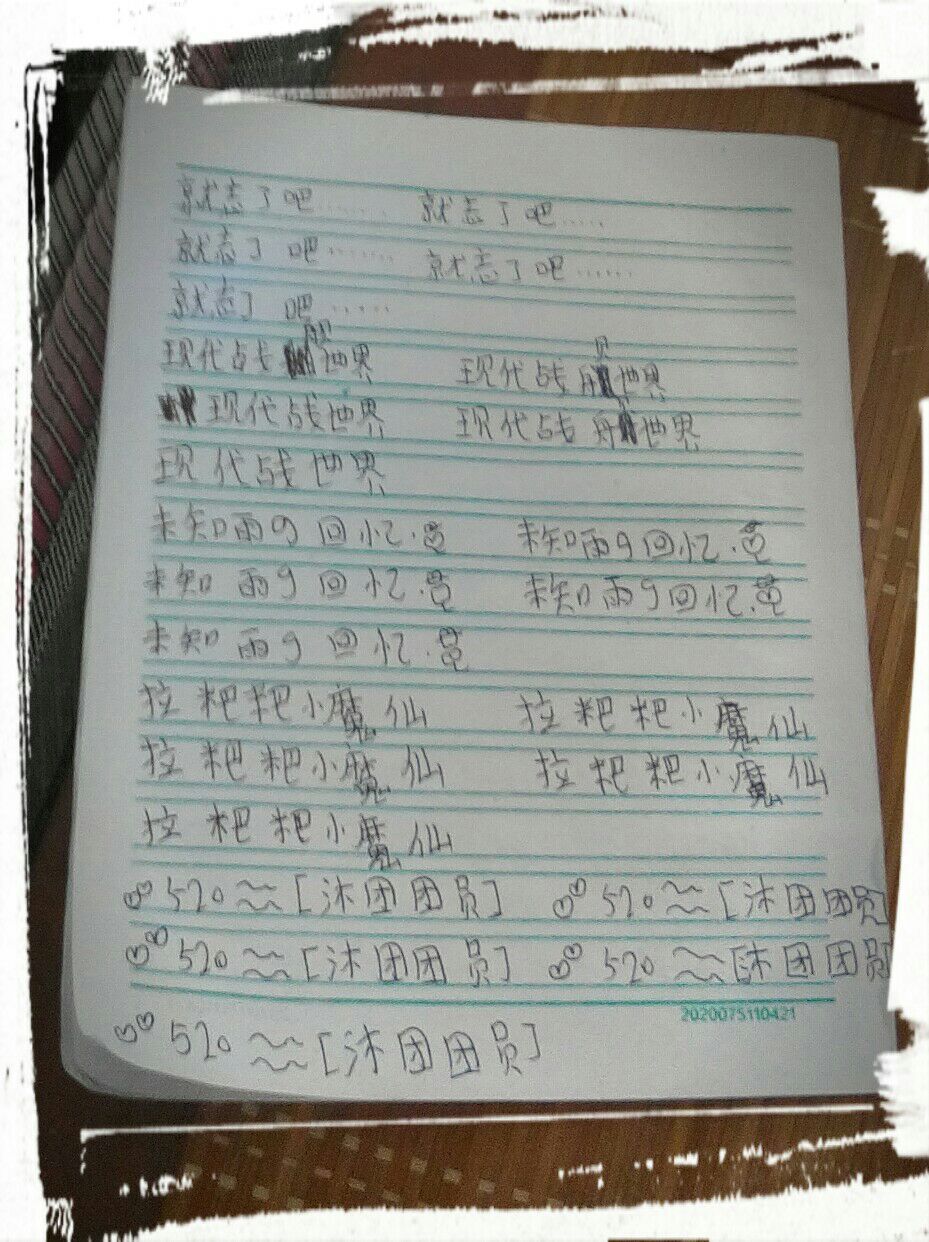 就忘了吧…… 就忘了吧……
就忘了吧…… 就忘了吧……
就忘了吧……
现代战舰世界 现代战舰世界
现代战世界 现代战舟世界
现代战世界
未知雨的回忆. 未知雨的回忆.
未知雨的回忆. 未知雨的回忆.
未知雨的回忆.
拉粑粑小魔仙 拉粑粑小魔仙
拉粑粑小魔仙 拉粑粑小魔仙
拉粑粑小魔仙
♡♡520≈[沐团团员] ♡♡520≈[沐团团员]
♡♡520≈[沐团团员] ♡♡520≈[沐团团员]
2020075110421
♡♡520≈[沐团团员]